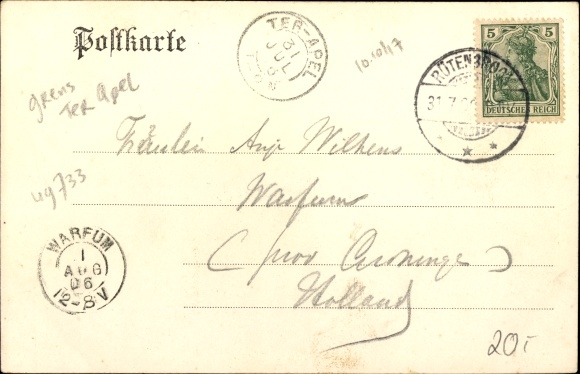 Postkarte
TER-APEL
31
JUL
10.10/17
5 5
DEUTSCHES REICH
RÜTENBROCK
31.7.06
grens
Ter Apel
Fräulein Anje Wilkens
ug733
Warfum
(prov Groningen)
Holland
WARFUM
1
AUG
06
12-8V
20,-